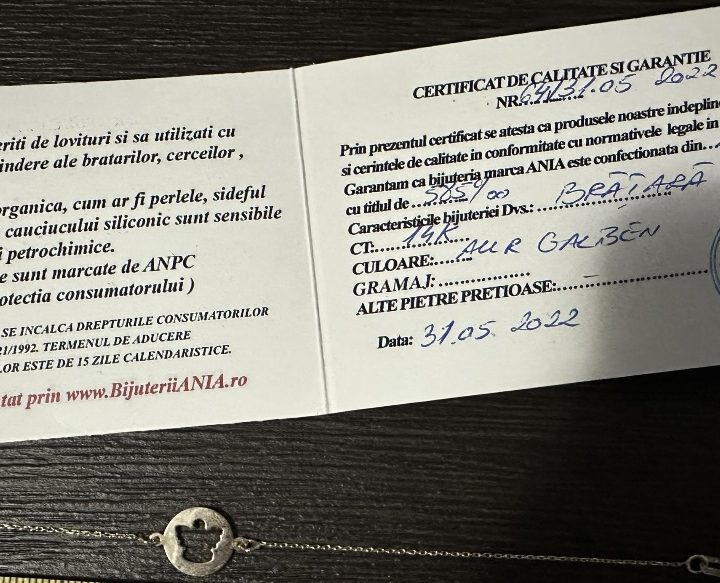 eriti de lovituri si sa utilizati cu
indere ale bratarilor, cerceilor ,
organica, cum ar fi perlele, sideful
cauciucului siliconic sunt sensibile
i petrochimice.
e sunt marcate de ANPC
otectia consumatorului )
SE INCALCA DREPTURILE CONSUMATORILOR
21/1992. TERMENUL DE ADUCERE
LOR ESTE DE 15 ZILE CALENDARISTICE.
tat prin www.BijuteriiANIA.ro
CERTIFICAT DE CALITATE SI GARANTIE
NR. 64/31.05 2022
Prin prezentul certificat se atesta ca produsele noastre indeplin
si cerintele de calitate in conformitate cu normativele legale in
Garantam ca bijuteria marca ANIA este confectionata din...
cu titlul de... 585‰
Caracteristicile bijuteriei Dvs.: BRĂȚARĂ
CT:... 14K
CULOARE:... AUR GALBEN
GRAMAJ: ................
ALTE PIETRE PRETIOASE: –
Data: 31.05.2022